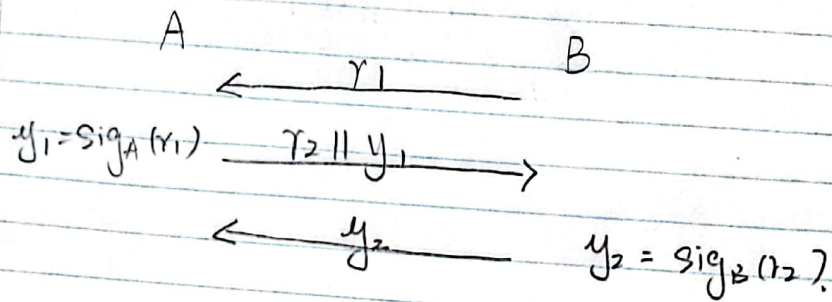 A B
r1
y1=sigA(r1) r2 || y1
y2 y2 = sigB(r2)?